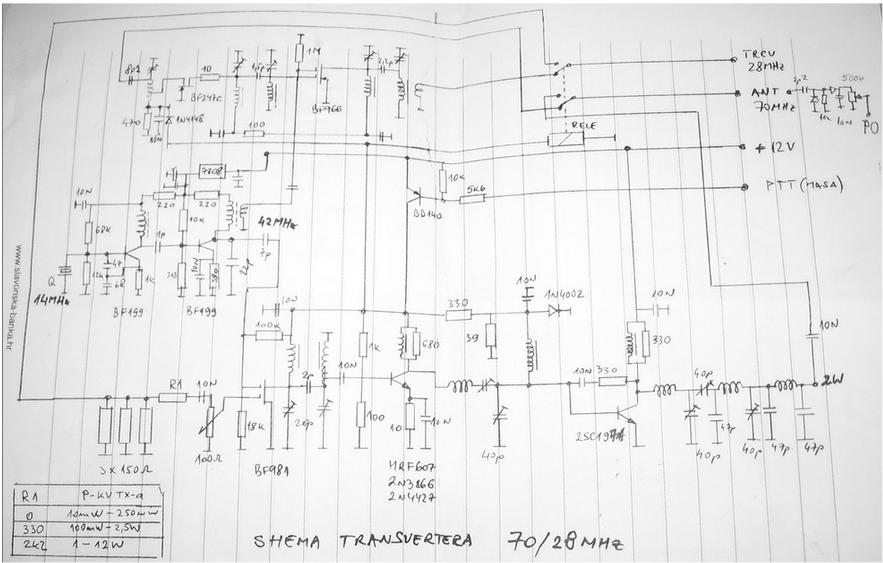 TRCV
28MHz
ANT
70MHz
2p2
500k
10k
10N
PO
RELE
+12V
PTT (MASA)
8p2
10
BF247C
470
1N4148
10N
100
1M
BF966
2,2p
7808
220
220
10N
68k
12k
47
68
1k
1p
10k
3k3
10N
22p
42MHz
7p
Q
14MHz
BF199
BF199
10k
5k6
BD140
www.slavonska-banka.hr
10N
100k
2p
20p
10N
1k
100
680
10
10N
330
39
10N
1N4002
10N
330
10N
330
40p
40p
40p
47p
40p
47p
47p
10N
2W
R1
10N
3 x 150Ω
100Ω
18k
BF981
MRF607
2N3866
2N4427
R1 P-KV TX-a
0 10mW-250mW
330 100mW-2,5W
2k2 1-12W
SHEMA TRANSVERTERA 70/28MHz